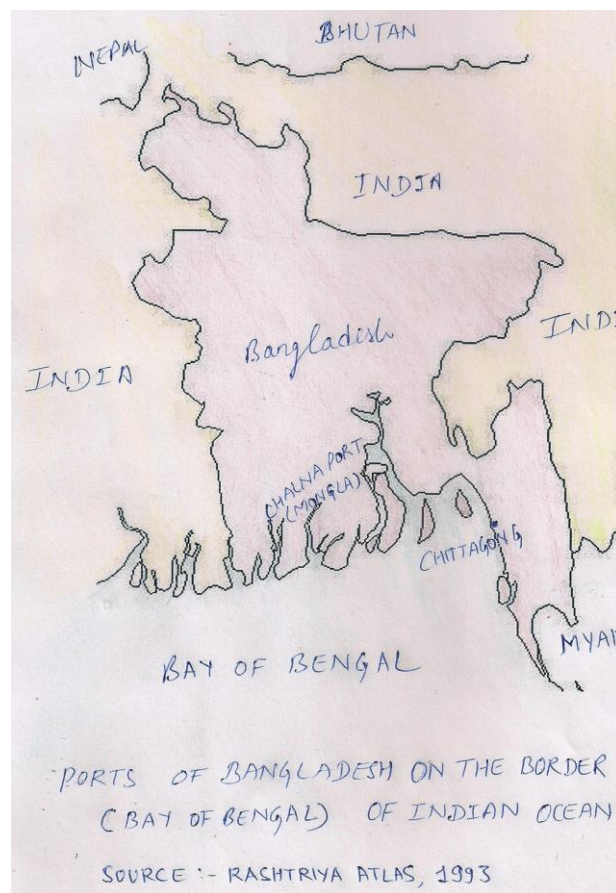 NEPAL
BHUTAN
INDIA
INDIA
Bangladesh
INDI
CHALNA PORT
(MONGLA)
CHITTAGONG
BAY OF BENGAL
MYAN
PORTS OF BANGLADESH ON THE BORDER
(BAY OF BENGAL) OF INDIAN OCEAN
SOURCE :- RASHTRIYA ATLAS, 1993